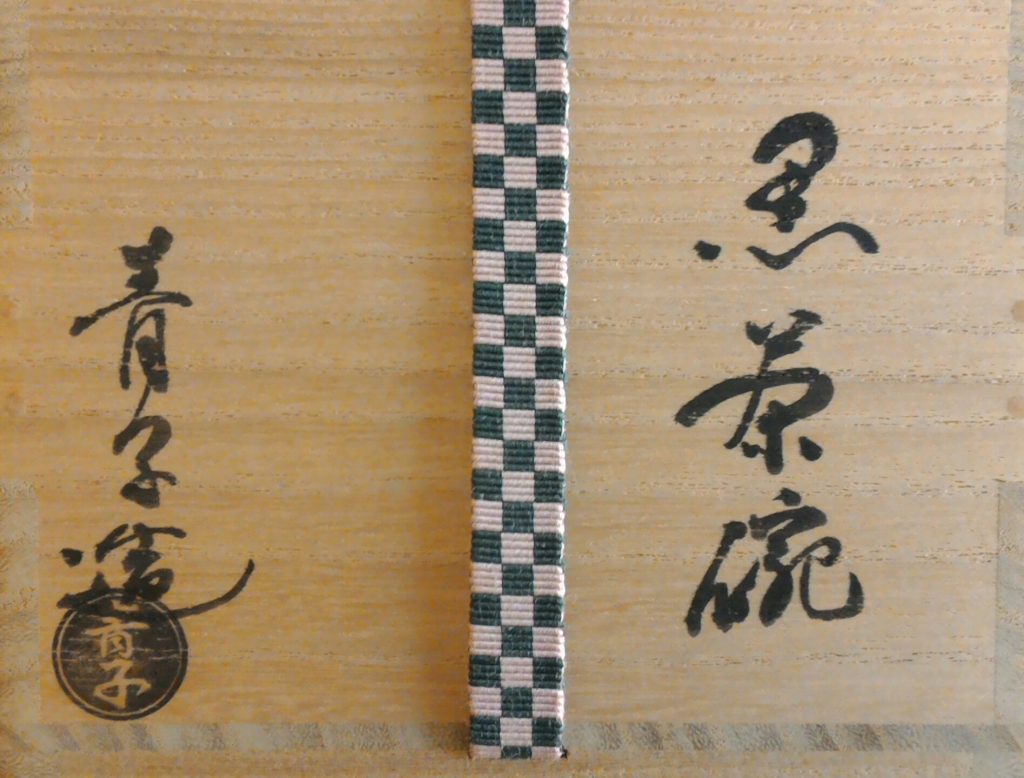 黒茶碗
青子造
青子